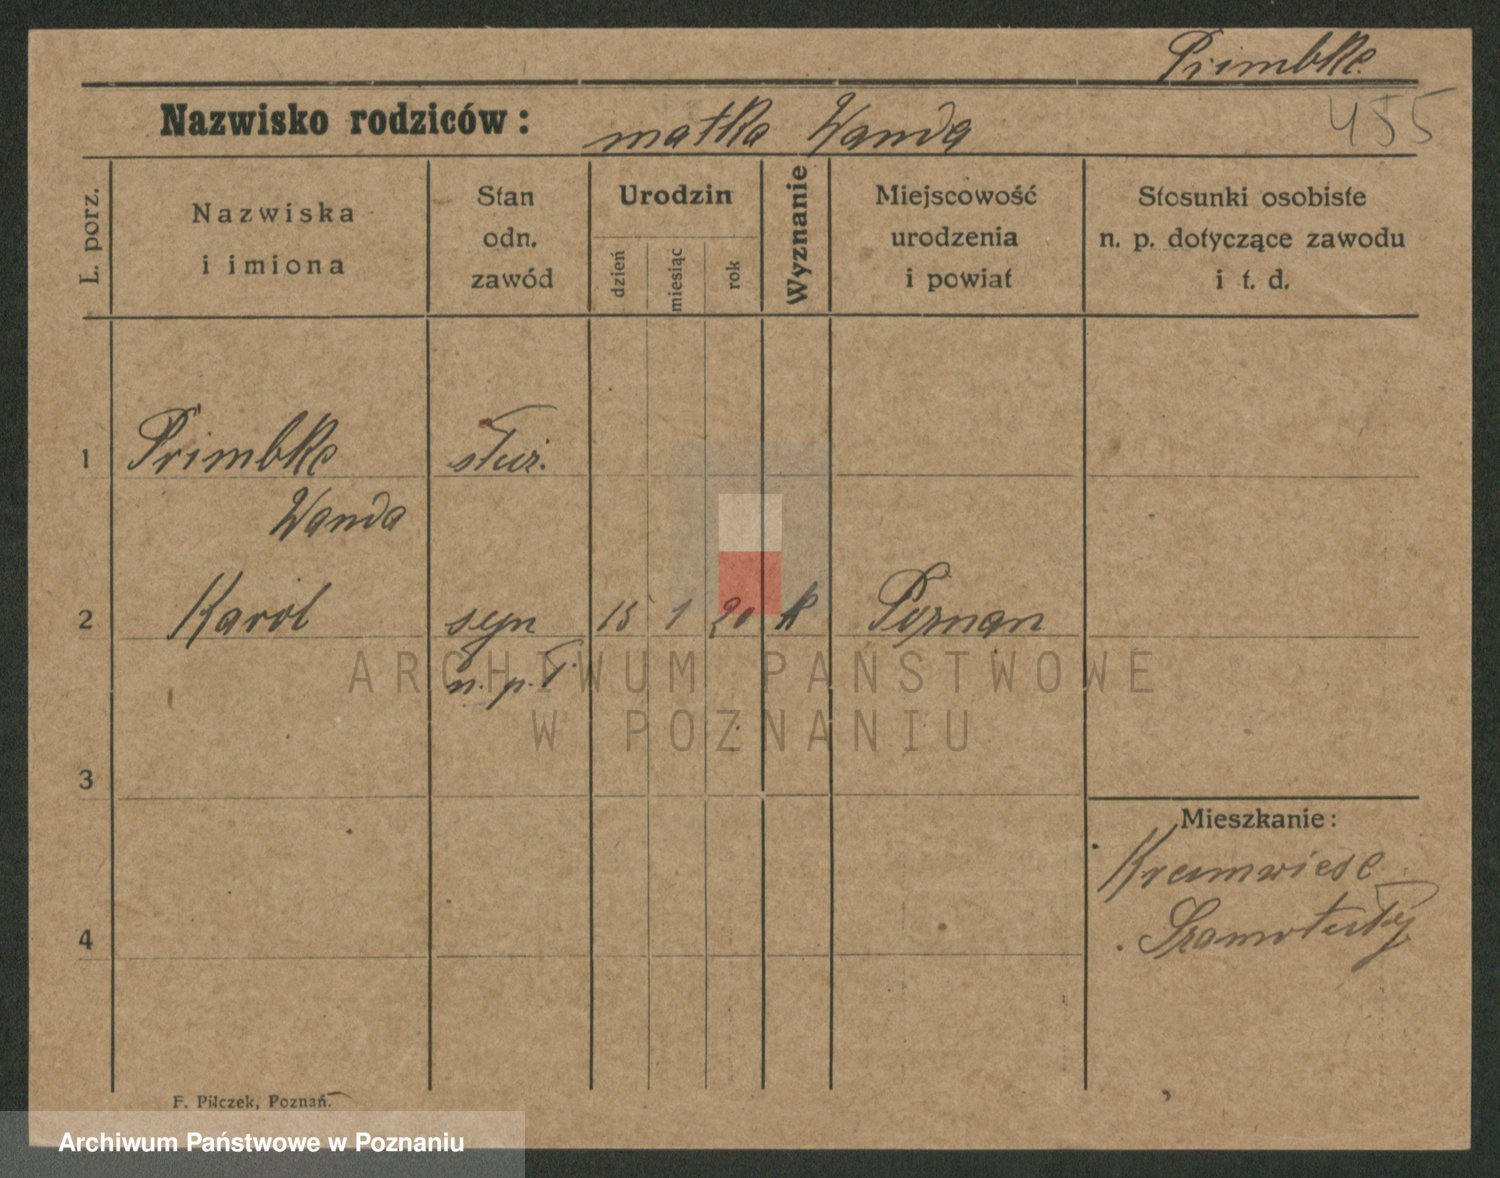 Primbke
Nazwisko rodziców: matka Wanda
455
L. porz.
Nazwiska
i imiona
Stan
odn.
zawód
Urodzin
dzień
miesiąc
rok
Wyznanie
Miejscowość
urodzenia
i powiat
Stosunki osobiste
n. p. dotyczące zawodu
i t. d.
1 Primbke służ.
Wanda
2 Karol syn 15 1 20 k Poznan
n. p. t.
ARCHIWUM PAŃSTWOWE
W POZNANIU
3
Mieszkanie:
Krumwiese
Szamotuły
4
F. Pilczek, Poznań.
Archiwum Państwowe w Poznaniu